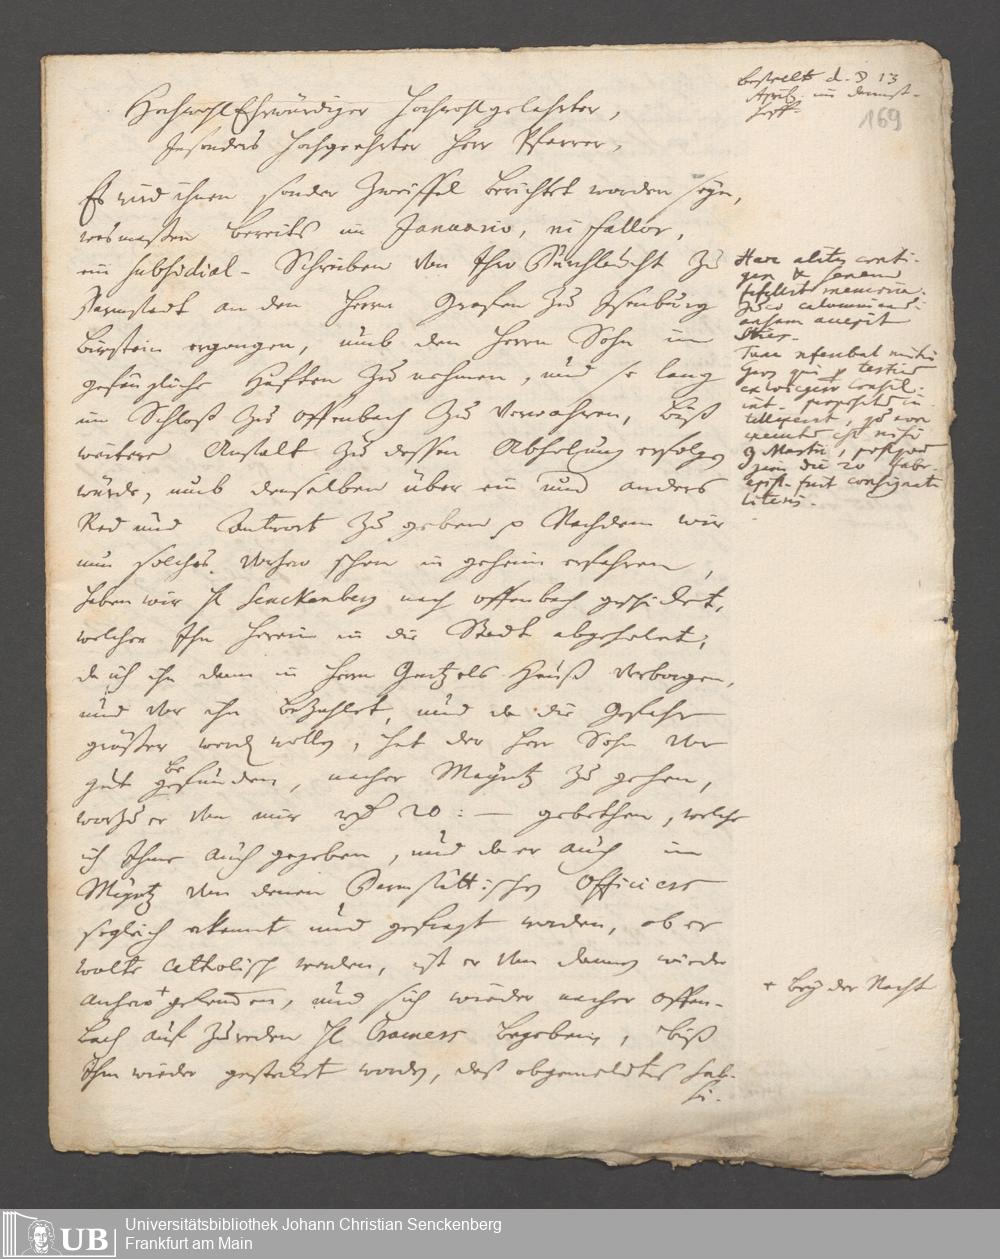 bestellt d. 13
April. im
169
HochwohlEhrwürdiger Hochwohlgelahrter,
Insonders Hochgeehrter Herr Pfarrer,
Es wird ihnen sonder Zweiffel berichtet worden seyn,
wesmassen bereits im Januario, ni fallor,
ein subsidial-Schreiben von Ihro Durchlaucht zu
Darmstadt an den Herrn Grafen zu Isenburg
Birstein ergangen, umb den Herrn Sohn in
gefängliche Hafften zu nehmen, und so lang
im Schloß zu Offenbach zu verwahren, biß
weitere Anstalt zu dessen Abholung erfolgen
würde, umb denselben über ein und anders
Red und Antwort zu geben p Nachdem wir
nun solches vorhero schon in geheim erfahren,
haben wir H Senckenberg nach Offenbach geschicket,
welcher Ihn herein in die Stadt abgeholet;
da ich ihn dann in Herrn Haus verborgen,
und vor ihn bezahlet, und da die Gefahr
größer werden wollen, hat der Herr Sohn vor
gut befunden, nacher Mayntz zu gehen,
worzu er von mir 20:— gebethen, welche
ich Ihme auch gegeben, und da er auch in
Mayntz von denen Darmstättischen Officiers
sogleich erkannt und gefragt worden, ob er
wolte catholisch werden, ist er von dannen wieder
anhero + gekommen, und sich wieder nacher Offen-
bach auf zureden H Cramers begeben, biß
Ihm wieder gestecket worden, daß obgemeldtes sub-
si-
Haec aliter conti-
gere & senem
fefellit memoria.
calumniandi
ansam
Tunc
testium
consil-
9 Martii,
die 20 Febr.
fuit consignata
literis.
+ bey der Nacht
UB
Universitätsbibliothek Johann Christian Senckenberg
Frankfurt am Main